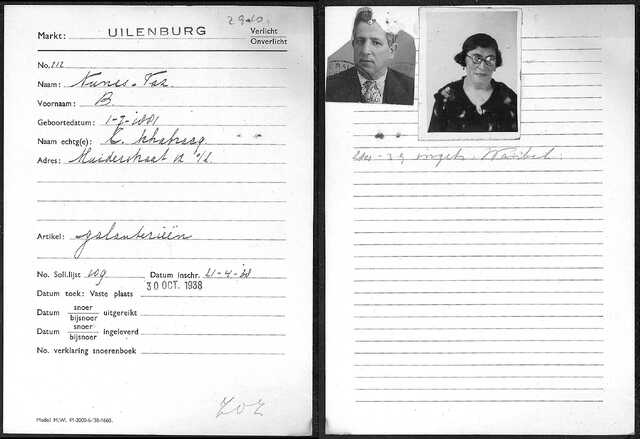 Markt: UILENBURG
Verlicht
Onverlicht
No. 212
Naam: Nunes-Vas
Voornaam: B.
Geboortedatum: 1-7-1881
Naam echtg(e): E.
Adres: Muiderstraat
Artikel: galanterieën
No. Soll.lijst 109 Datum inschr. 21-4-38
Datum toek: Vaste plaats 30 OCT. 1938
Datum snoer/bijsnoer uitgereikt
Datum snoer/bijsnoer ingeleverd
No. verklaring snoerenboek
ZOZ
Model M.W.